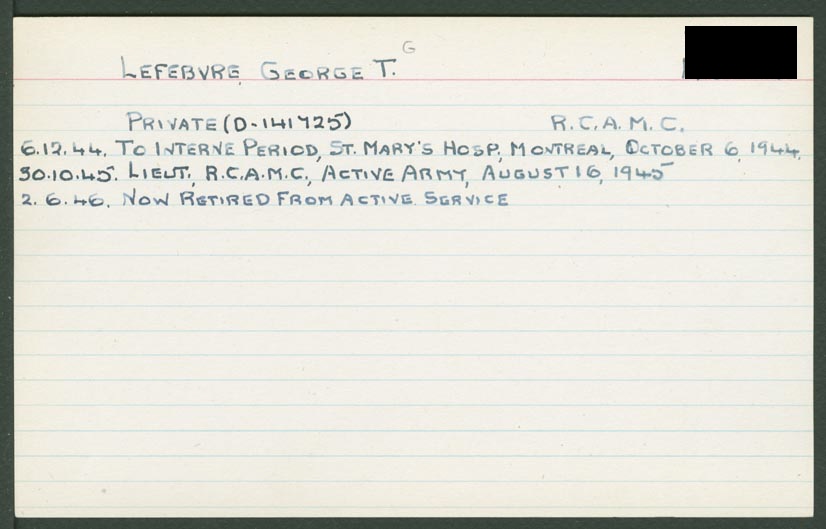 G
LEFEBVRE, GEORGE T.
PRIVATE (D-141725) R.C.A.M.C.
6.12.44. TO INTERNE PERIOD, ST. MARY'S HOSP, MONTREAL, OCTOBER 6, 1944.
30.10.45. LIEUT., R.C.A.M.C., ACTIVE ARMY, AUGUST 16, 1945
2.6.46. NOW RETIRED FROM ACTIVE SERVICE